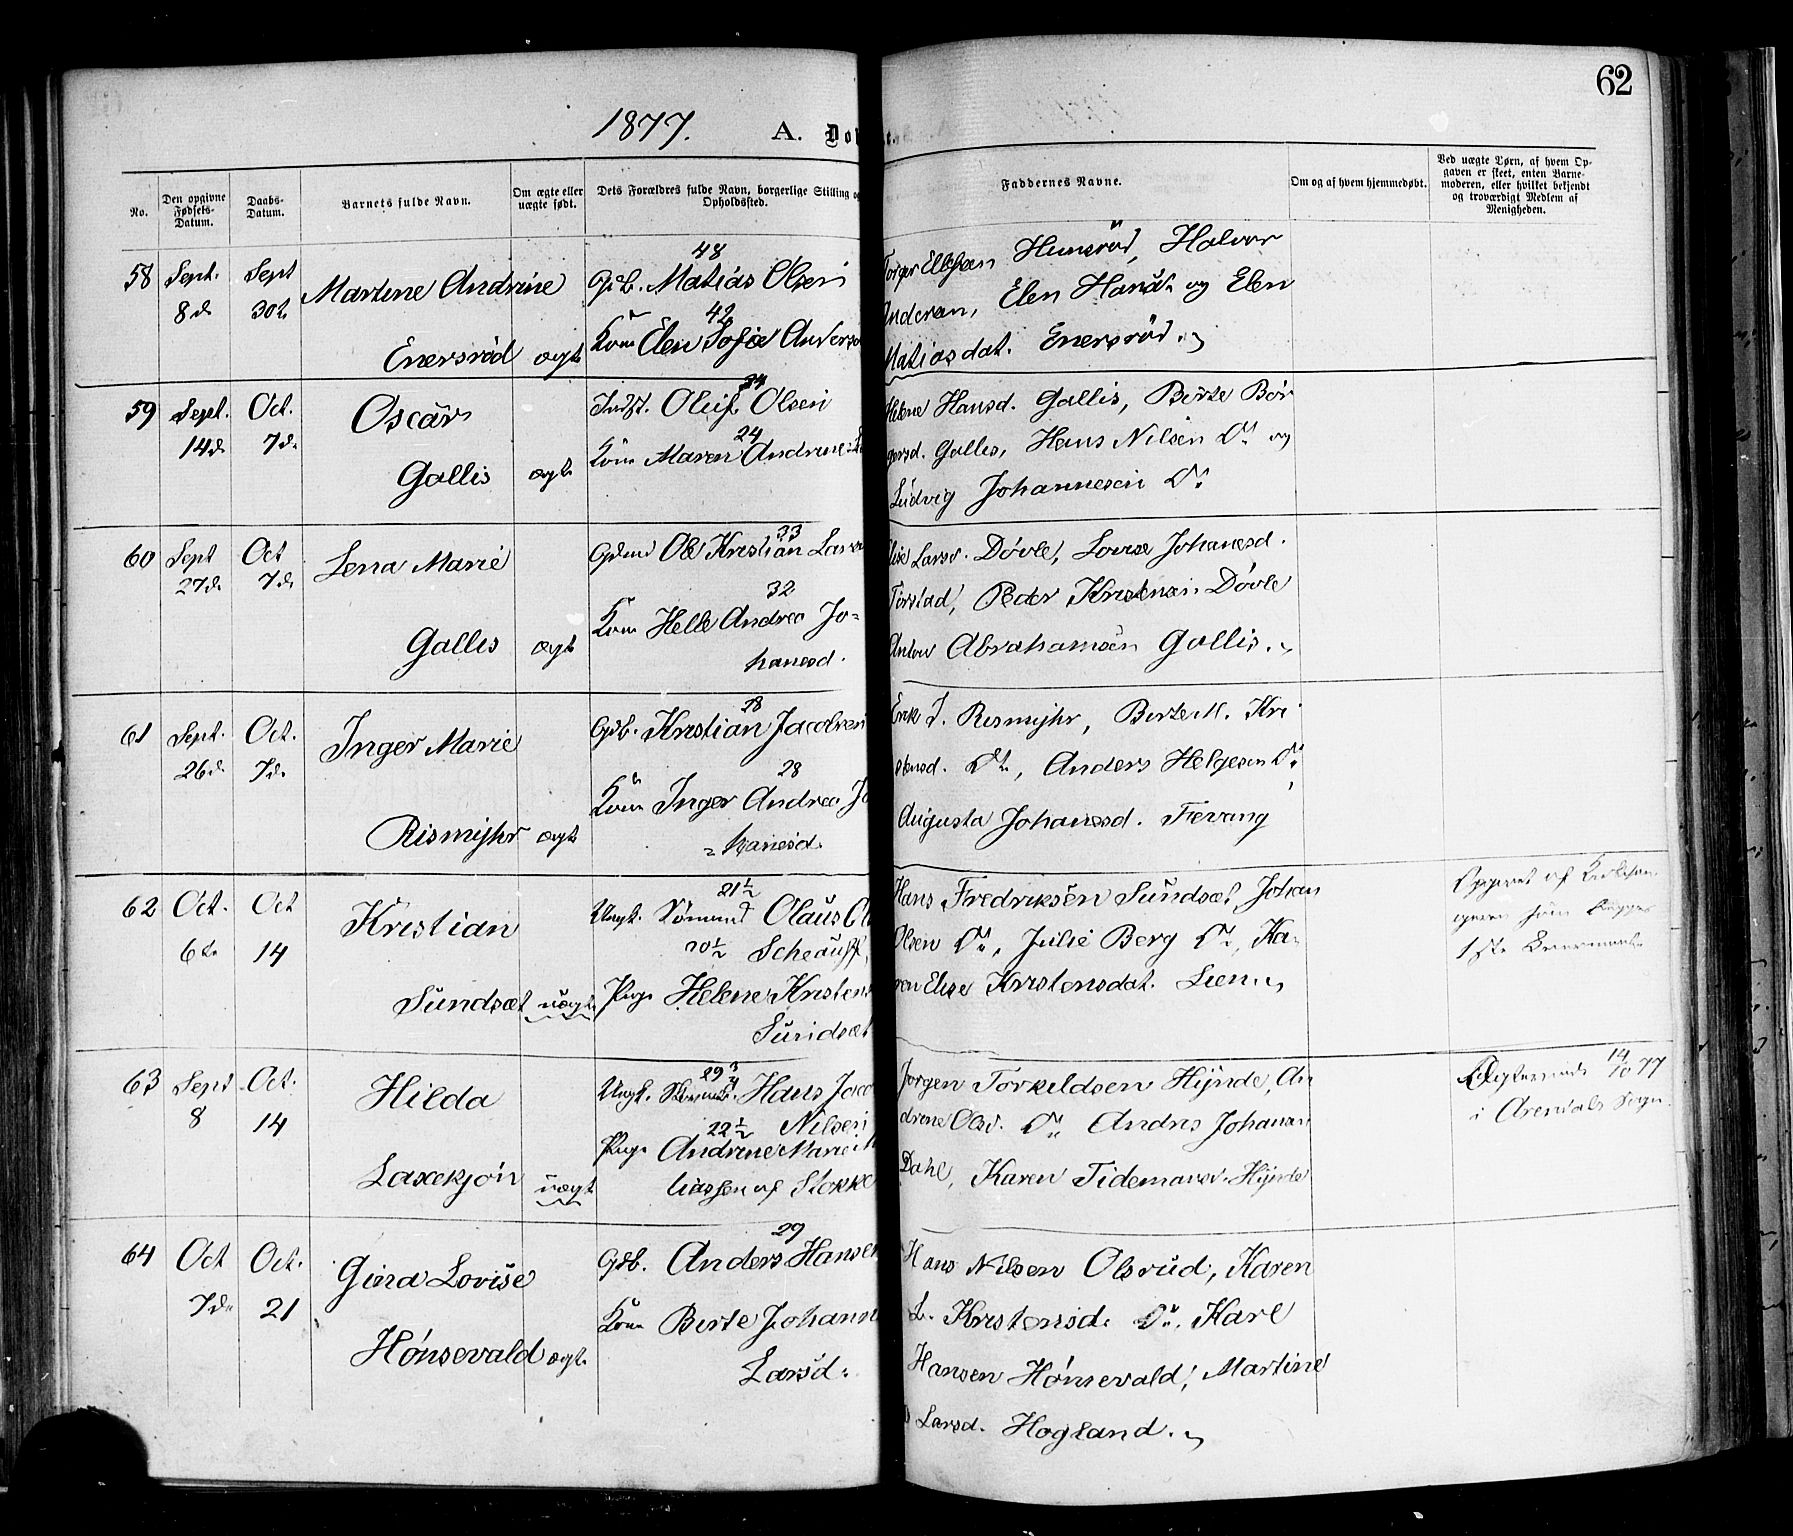 62
1877. A. Dob
No.
Den opgivne Fødsels-Datum.
Daabs-Datum.
Barnets fulde Navn.
Om ægte eller uægte født.
Dets Forældres fulde Navn, borgerlige Stilling og Opholdssted.
Faddernes Navne.
Om og af hvem hjemmedøbt.
Ved uægte Børn, af hvem Opgaven er skeet, enten Barnemoderen, eller hvilket bekjendt og troværdigt Medlem af Menigheden.
58 Sept. 8de Sept 30te Martine Andrine
Enersrød ægte
48
Gdb. Matias Olsen
42
Kone Elen Sofie Anders
Torger Ellefsen Hunsrød, Halvor
Anderssen, Elen Hansd. og Elen
Matiasdat. Enersrød.
59 Sept. 14de Oct. 7de Oscar
Gallis ægte
34
Indst. Oluf Olsen
24
Kone Maren Andrine
Helene Hansd. Gallis, Berte Bør
gersd. Gallis, Hans Nilsen Do og
Ludvig Johannesen Do
60 Sept 27de Oct 7de Lena Marie
Gallis ægte
33
Gdmd Ole Kristian Lars
32
Kone Helle Andrea Jo-
hanesd.
Elise Larsd. Døvle, Lovise Johanesd.
Torstad, Peder Kristensen Døvle
Anton Abrahamsen Gallis.
61 Sept. 26de Oct. 7de Inger Marie
Rismyhr ægte
28
Gdb. Kristian Jacobsen
28
Kone Inger Andrea Jo
hanesd.
Erik J. Rismyhr, Berte M. Kri
stensd. Do, Anders Helgesen Do
Augusta Johanesd. Trevang
62 Oct. 6te Oct 14 Kristian
Sundsæt uægte
21½
Ungk. Sømand Olaus Ol
20½ Scheau
Pige Helene Kristens
Sundsæt
Hans Fredriksen Sundsæt, Johan
Olsen Do, Julie Berg Do, Ka-
ren Elise Kristensdat. Lien
Opgivet af
som
1ste
63 Sept 8 Oct. 14 Hilda
Laxekjøn uægte
29¾
Ungk. Sømand. Hans Jaco
22½ Nilsen
Pige Andrine Marie M
af Stokke
Jorgen Torkildsen Hynde, An
drene Olsd. Do Andres Johansen
Dahl, Karen Tidemansd. Hynde
14/10 77
i Arendals Sogn.
64 Oct 7de Oct. 21 Gina Lovise
Hønsevald ægte
29
Gdb. Anders Hansen
Kone Berte Johanne
Larsd.
Hans Nilsen Olsrud, Karen
L. Kristensd. Do, Karl
Hansen Hønsevald, Martine
Larsd. Hogland.